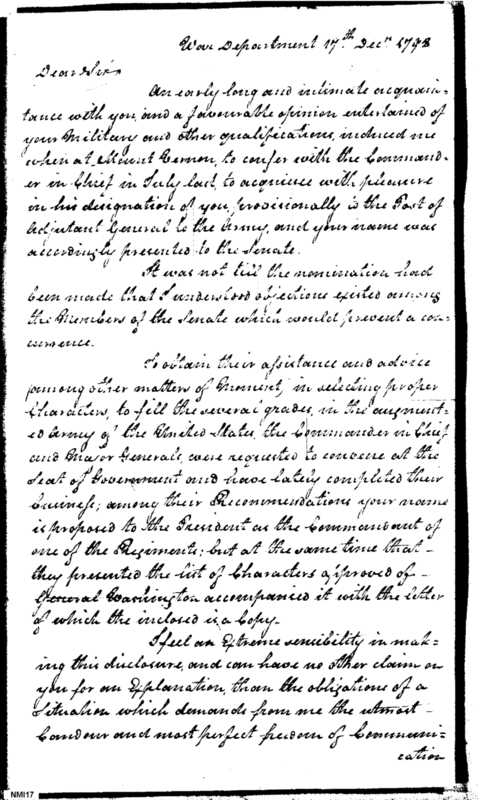 War Department 17th Decr 1798
Dear Sir
An early long and intimate acquain-
tance with you, and a favourable opinion entertained of
your Military and other qualifications, induced me
when at Mount Vernon, to confer with the Command-
er in Chief in July last, to acquiesce with pleasure
in his designation of you provisionally to the Post of
Adjutant General to the Army, and your name was
accordingly presented to the Senate.
It was not till the nomination had
been made that I understood objections existed among
the Members of the Senate which would prevent a con-
currence.
To obtain their assistance and advice
(among other matters of Moment) in selecting proper
Characters, to fill the several grades, in the augment-
ed Army of the United States, the Commander in Chief
and Major Generals, were requested to convene at the
Seat of Government and have lately completed their
business; among their Recommendations your name
is proposed to the President as the Commandant of
one of the Regiments; but at the same time that
they presented the list of Characters approved of
General Washington accompanied it with the letter
of which the inclosed is a Copy.
I feel an Extreme sensibility in mak-
ing this disclosure, and can have no other claim on
you for an Explanation, than the obligations of a
Situation which demands from me the utmost
Candour and most perfect freedom of Communi-
cation
NMI17